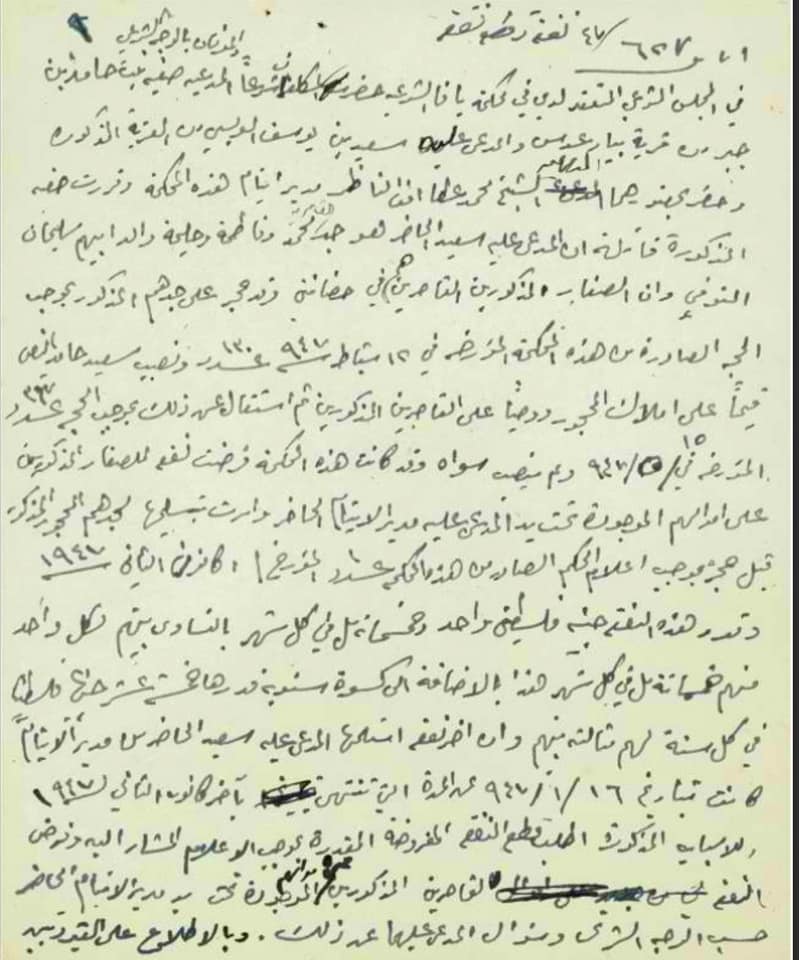 ٤٧/ نفقة
والمعرفان بالوجه الشرعي
في المجلس الشرعي المنعقد لدي في محكمة يافا الشرعية حضرت المكلفة شرعاً المدعيه صفيه بنت حامد
جبر من قرية بيار عدس والمدعى عليه سعيد بن يوسف من القرية المذكورة
وحضر بحضورهما الشيخ محمد عطا الناظر مدير ايتام هذه المحكمة وقررت صفيه
المذكورة قائلة ان المدعى عليه سعيد الحاضر هو جد محمد وفاطمة وحليمة والد ابيهم سليمان
المتوفي وان الصغار المذكورين القاصرين هم في حضانتي وقد حجر على جدهم المذكور بموجب
الحجه الصادرة من هذه المحكمة المؤرخه في ١٢ شباط سنه ٩٤٧ عدد ١٣٠ ونصب سعيد حامد
قيماً على املاك المحجور ووصياً على القاصرين المذكورين ثم استقال عن ذلك بموجب الحجه عدد
المؤرخه في ١٥/٥/٩٤٧ ولم ينصب سواه وقد كانت هذه المحكمة فرضت نفقه للصغار المذكورين
على اموالهم الموجودة تحت يد المدعى عليه مدير الايتام الحاضر وامرت بتسليمها لجدهم المحجور المذكور
قبل حجره بموجب اعلام الحكم الصادر من هذه المحكمه عدد ١ المؤرخ ١ كانون الثاني ١٩٤٧
وقدر هذه النفقه جنيه فلسطيني واحد وخمسمائة مل في كل شهر بالتساوي بينهم لكل واحد
منهم خمسمائة مل في كل شهر هذا بالاضافة الى كسوة سنوية قدرها خمسة عشر جنيهاً فلسطينياً
في كل سنة لهم مثالثة بينهم وان اخر نفقه استلمها المدعى عليه سعيد الحاضر من مدير الايتام
كانت بتاريخ ١٦/١/٩٤٧ عن المدة التي تنتهي بآخر كانون الثاني ١٩٤٧
وللاسباب المذكورة اطلب قطع النفقه المفروضة المقدرة بموجب الاعلام المشار اليه وفرض
النفقه للقاصرين المذكورين الموجودة تحت يد مدير الايتام الحاضر
حسب الوجه الشرعي وسؤال المدعى عليهما عن ذلك. وبالاطلاع على القيود تبين